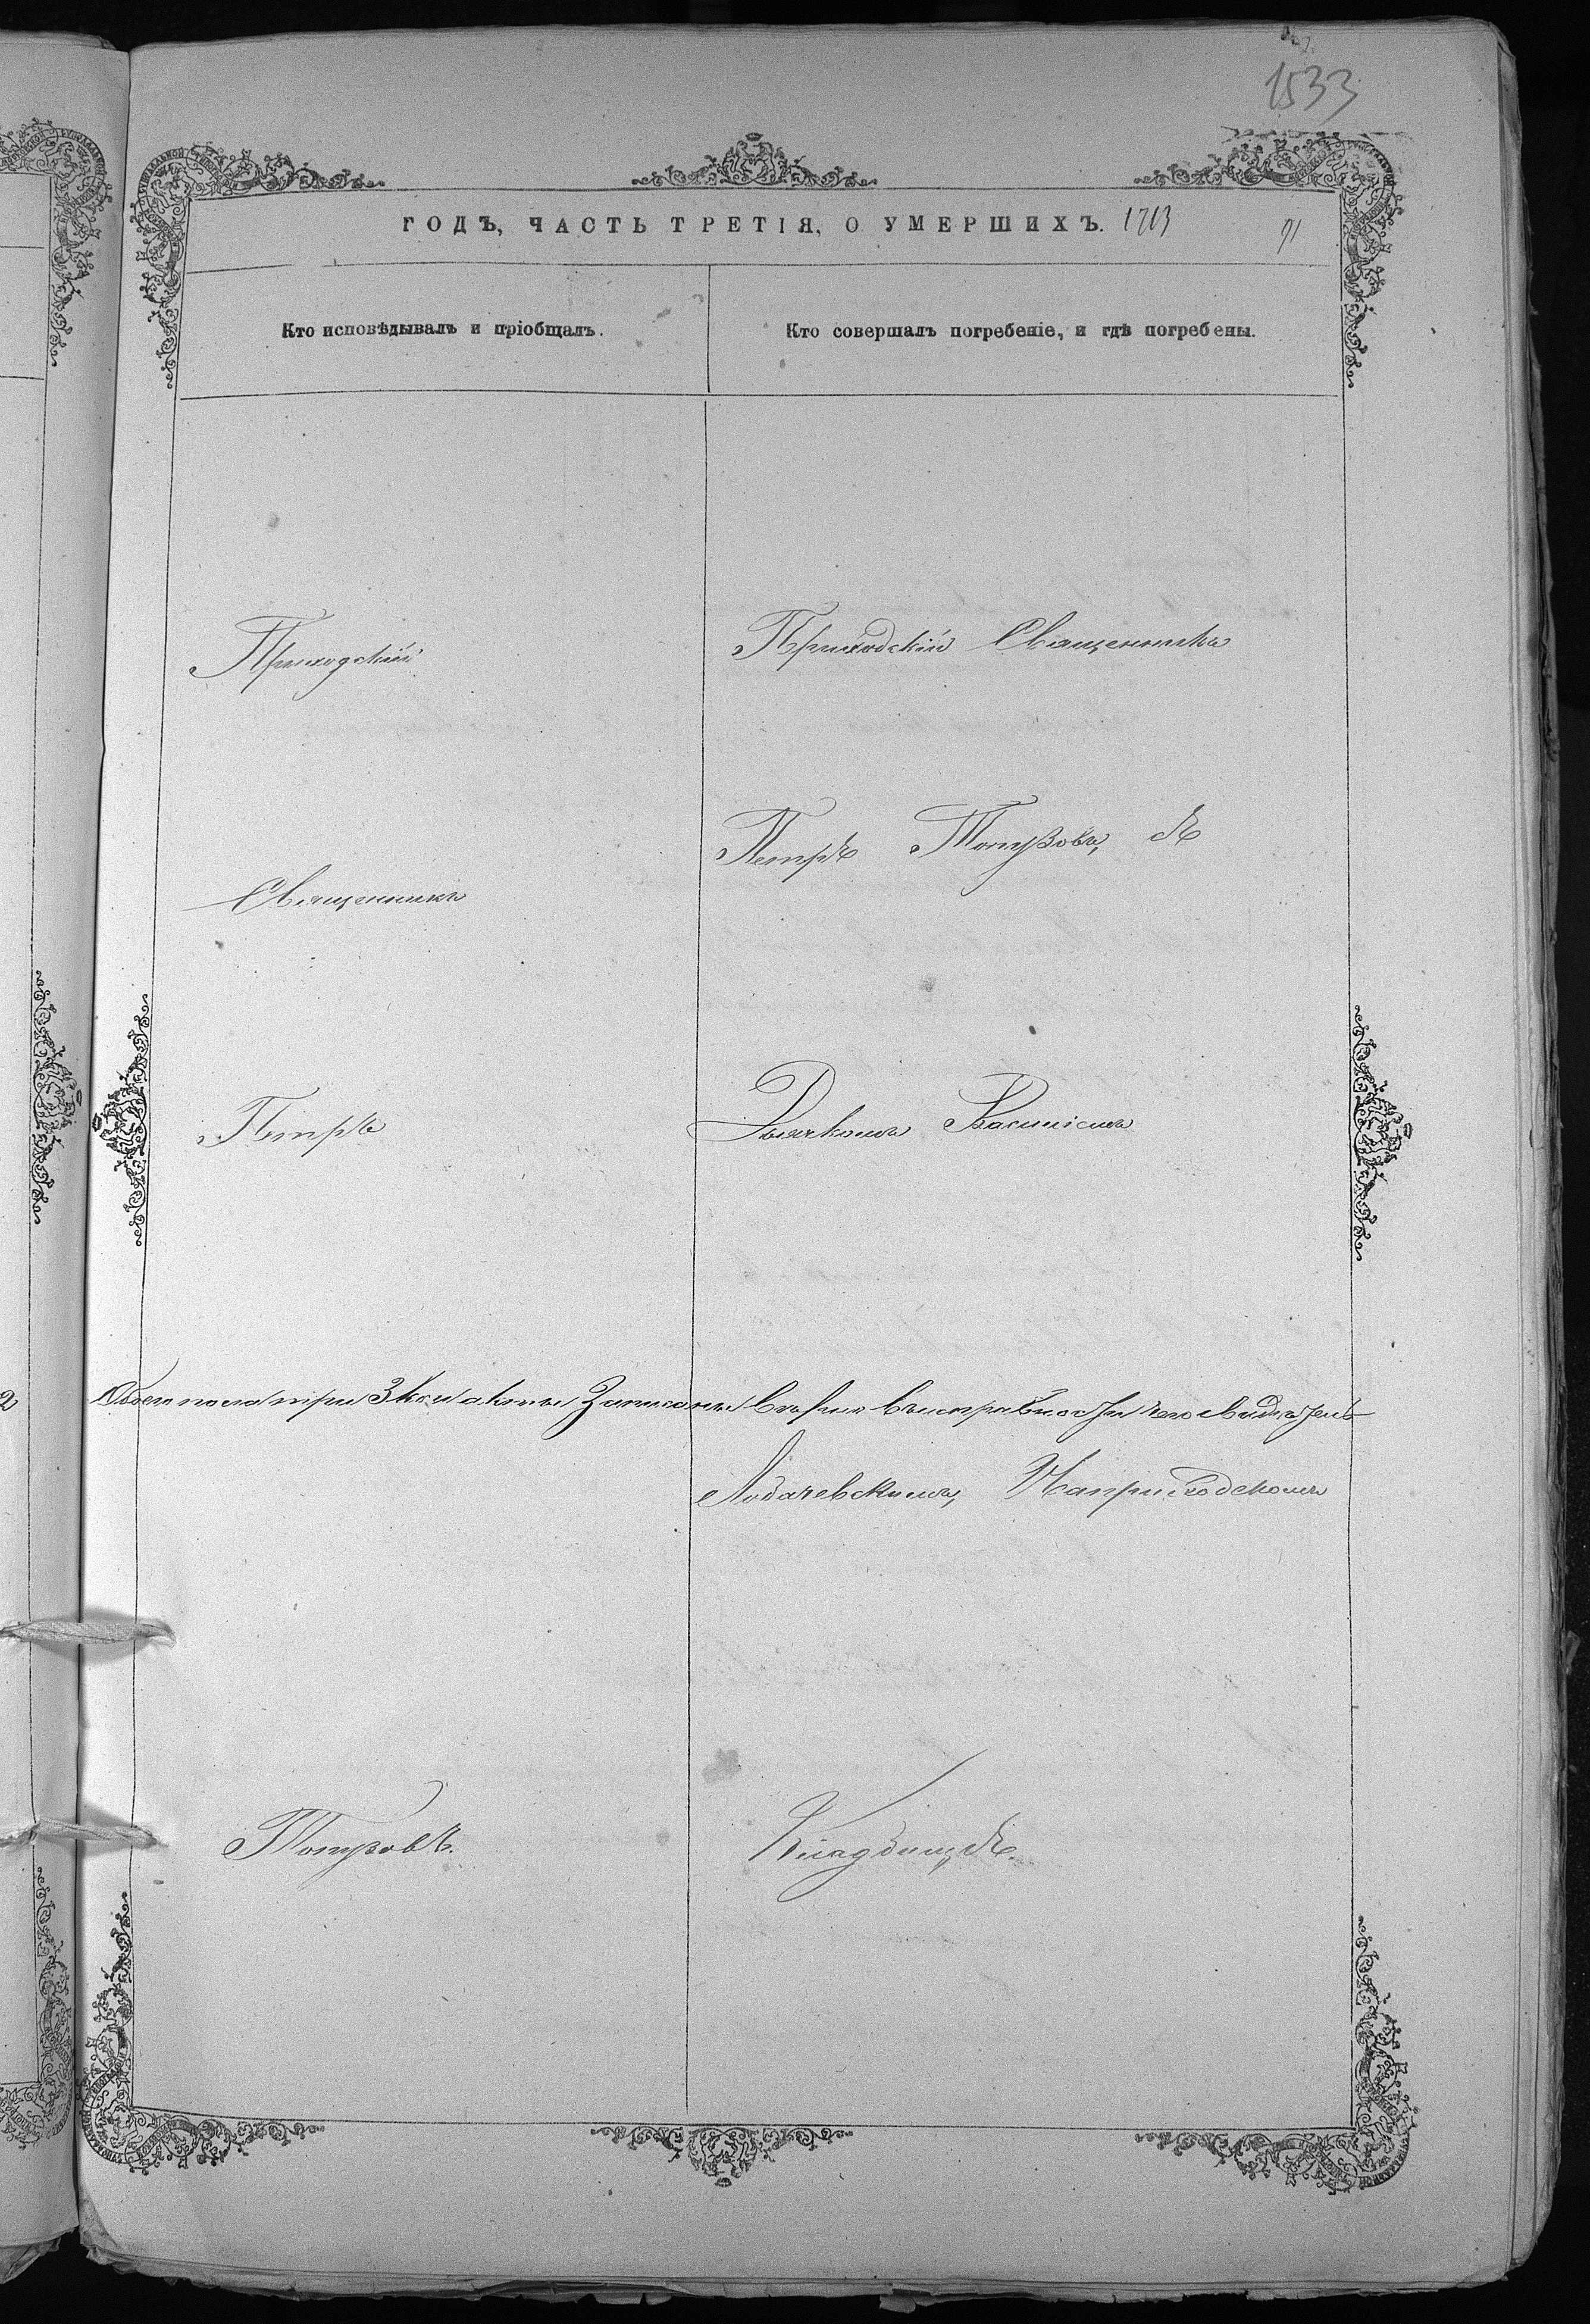 1533
ГОДЪ, ЧАСТЬ ТРЕТІЯ, О УМЕРШИХЪ. 1713
91
Кто исповѣдывалъ и пріобщалъ.
Кто совершалъ погребеніе, и гдѣ погребены.
Приходскій
Священникъ
Петръ
Топузовъ.
Приходскій Священникъ
Петръ Топузовъ, съ
Дьячкомъ Василіемъ
Обоего пола три 3 Кои акты Записаны Вѣрно
Лобачевскимъ, На приходскомъ
Кладбищѣ.
2